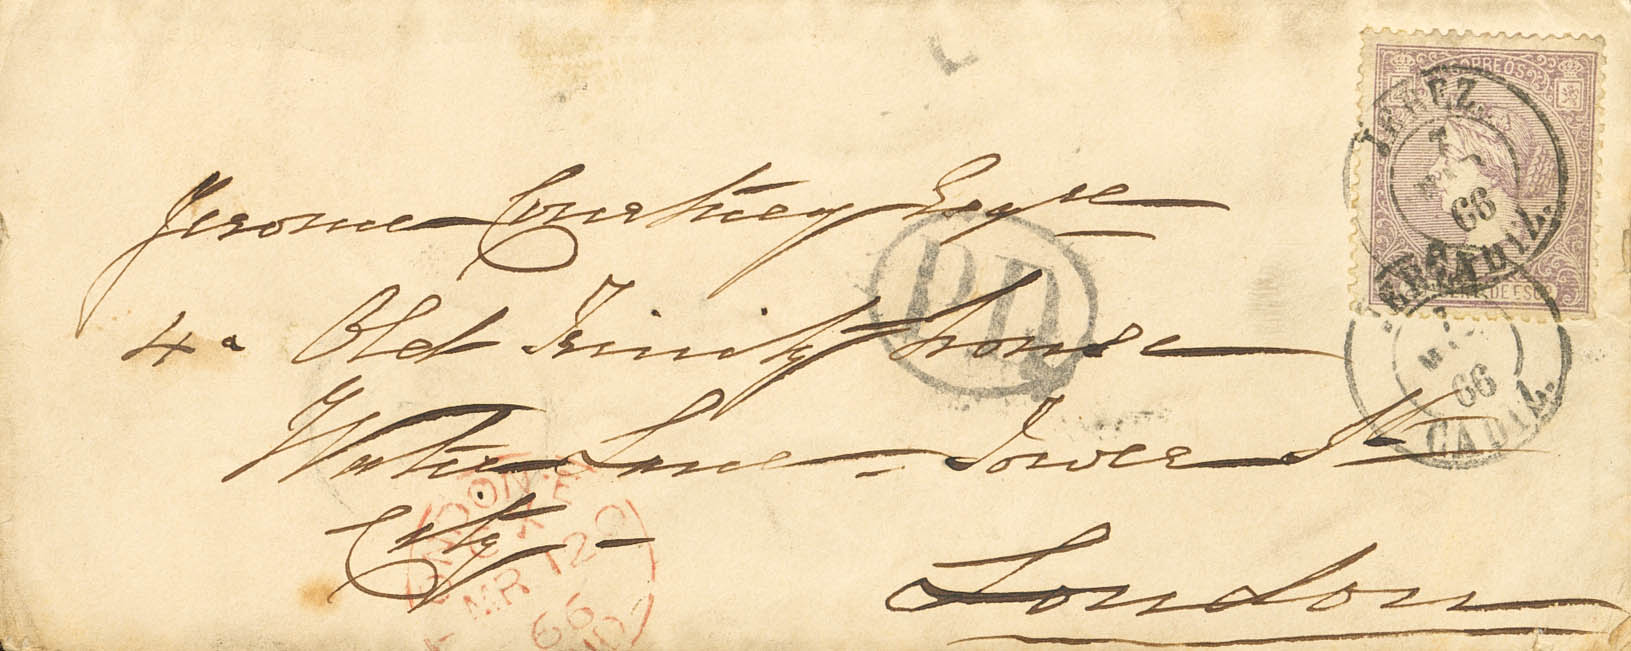 CORREOS
JEREZ.
7
MAR
66
CADIZ.
Jerome Courtney Esqre
P.D.
4a Old Trinity house
JEREZ
66
CADIZ.
Water Lane - Tower St
City -
London
LONDON E
CX
MR 12
66